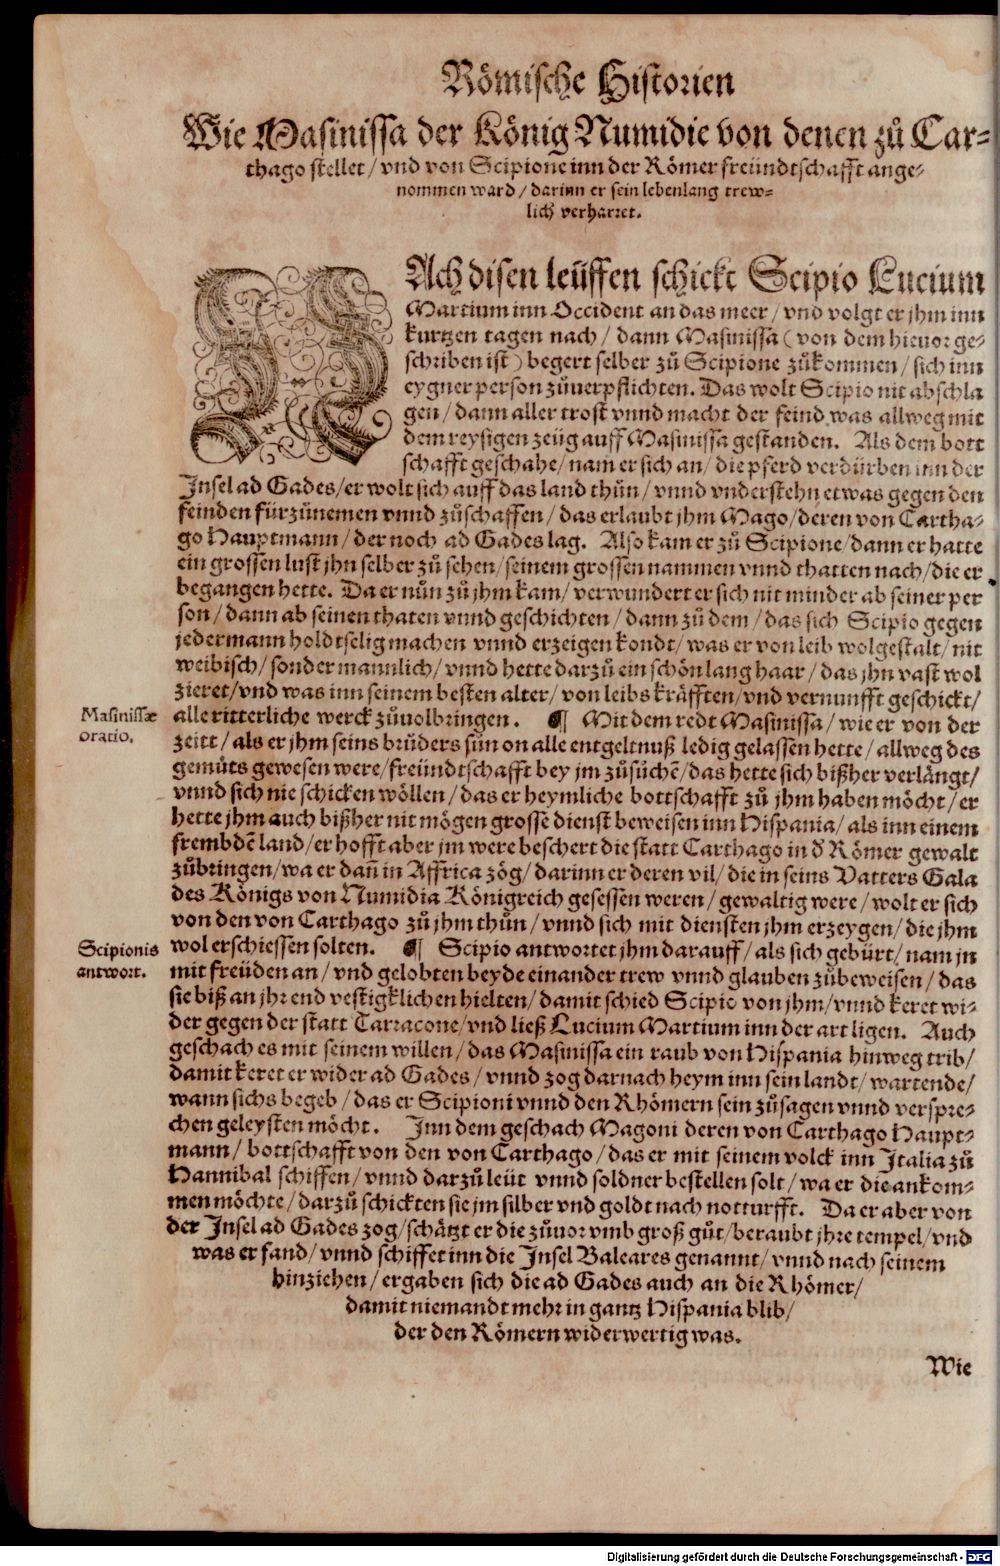 Römische Historien
Wie Masinissa der König Numidie von denen zů Car-
thago stellet / vnd von Scipione inn der Römer freündtschafft ange-
nommen ward / darinn er sein lebenlang trew-
lich verharret.
NAch disen leüffen schickt Scipio Lucium
Martium inn Occident an das meer / vnd volgt er jhm inn
kurtzen tagen nach / dann Masinissa ( von dem hieuor ge-
schriben ist ) begert selber zů Scipione zůkommen / sich inn
eygner person zůuerpflichten. Das wolt Scipio nit abschla
gen / dann aller trost vnnd macht der feind was allweg mit
dem reysigen zeüg auff Masinissa gestanden. Als dem bott
schafft geschahe / nam er sich an / die pferd verdürben inn der
Insel ad Gades / er wolt sich auff das land thůn / vnnd vnderstehn etwas gegen den
feinden fürzůnemen vnnd zůschaffen / das erlaubt jhm Mago / deren von Cartha-
go Hauptmann / der noch ad Gades lag. Also kam er zů Scipione / dann er hatte
ein grossen lust jhn selber zů sehen / seinem grossen nammen vnnd thatten nach / die er
begangen hette. Da er nůn zů jhm kam / verwundert er sich nit minder ab seiner per
son / dann ab seinen thaten vnnd geschichten / dann zů dem / das sich Scipio gegen
jedermann holdtselig machen vnnd erzeigen kondt / was er von leib wolgestalt / nit
weibisch / sonder mannlich / vnnd hette darzů ein schön lang haar / das jhn vast wol
zieret / vnd was inn seinem besten alter / von leibs kräfften / vnd vernunfft geschickt /
Masinissæ
oratio.
alle ritterliche werck zůuolbringen. ¶ Mit dem redt Masinissa / wie er von der
zeitt / als er jhm seins brůders sůn on alle entgeltnuß ledig gelassen hette / allweg des
gemůts gewesen were / freündtschafft bey jm zůsůchē / das hette sich bißher verlängt /
vnnd sich nie schicken wöllen / das er heymliche bottschafft zů jhm haben möcht / er
hette jhm auch bißher nit mögen grossē dienst beweisen inn Hispania / als inn einem
frembdē land / er hofft aber jm were beschert die statt Carthago in d̕ Römer gewalt
zůbringen / wa er dañ in Affrica zög / darinn er deren vil / die in seins Vatters Gala
des Königs von Numidia Königreich gesessen weren / gewaltig were / wolt er sich
von den von Carthago zů jhm thůn / vnnd sich mit diensten jhm erzeygen / die jhm
Scipionis
antwort.
wol erschiessen solten. ¶ Scipio antwortet jhm darauff / als sich gebürt / nam jn
mit freüden an / vnd gelobten beyde einander trew vnnd glauben zůbeweisen / das
sie biß an jhr end vestigklichen hielten / damit schied Scipio von jhm / vnnd keret wi-
der gegen der statt Tarracone / vnd ließ Lucium Martium inn der art ligen. Auch
geschach es mit seinem willen / das Masinissa ein raub von Hispania hinweg trib /
damit keret er wider ad Gades / vnnd zog darnach heym inn sein landt / wartende /
wann sichs begeb / das er Scipioni vnnd den Rhömern sein zůsagen vnnd verspre-
chen geleysten möcht. Inn dem geschach Magoni deren von Carthago Haupt-
mann / bottschafft von den von Carthago / das er mit seinem volck inn Italia zů
Hannibal schiffen / vnnd darzů leüt vnnd soldner bestellen solt / wa er die ankom-
men möchte / darzů schickten sie jm silber vnd goldt nach notturfft. Da er aber von
der Insel ad Gades zog / schätzt er die zůuor vmb groß gůt / beraubt jhre tempel / vnd
was er fand / vnnd schiffet inn die Insel Baleares genannt / vnnd nach seinem
hinziehen / ergaben sich die ad Gades auch an die Rhömer /
damit niemandt mehr in gantz Hispania blib /
der den Römern widerwertig was.
Wie
Digitalisierung gefördert durch die Deutsche Forschungsgemeinschaft - DFG